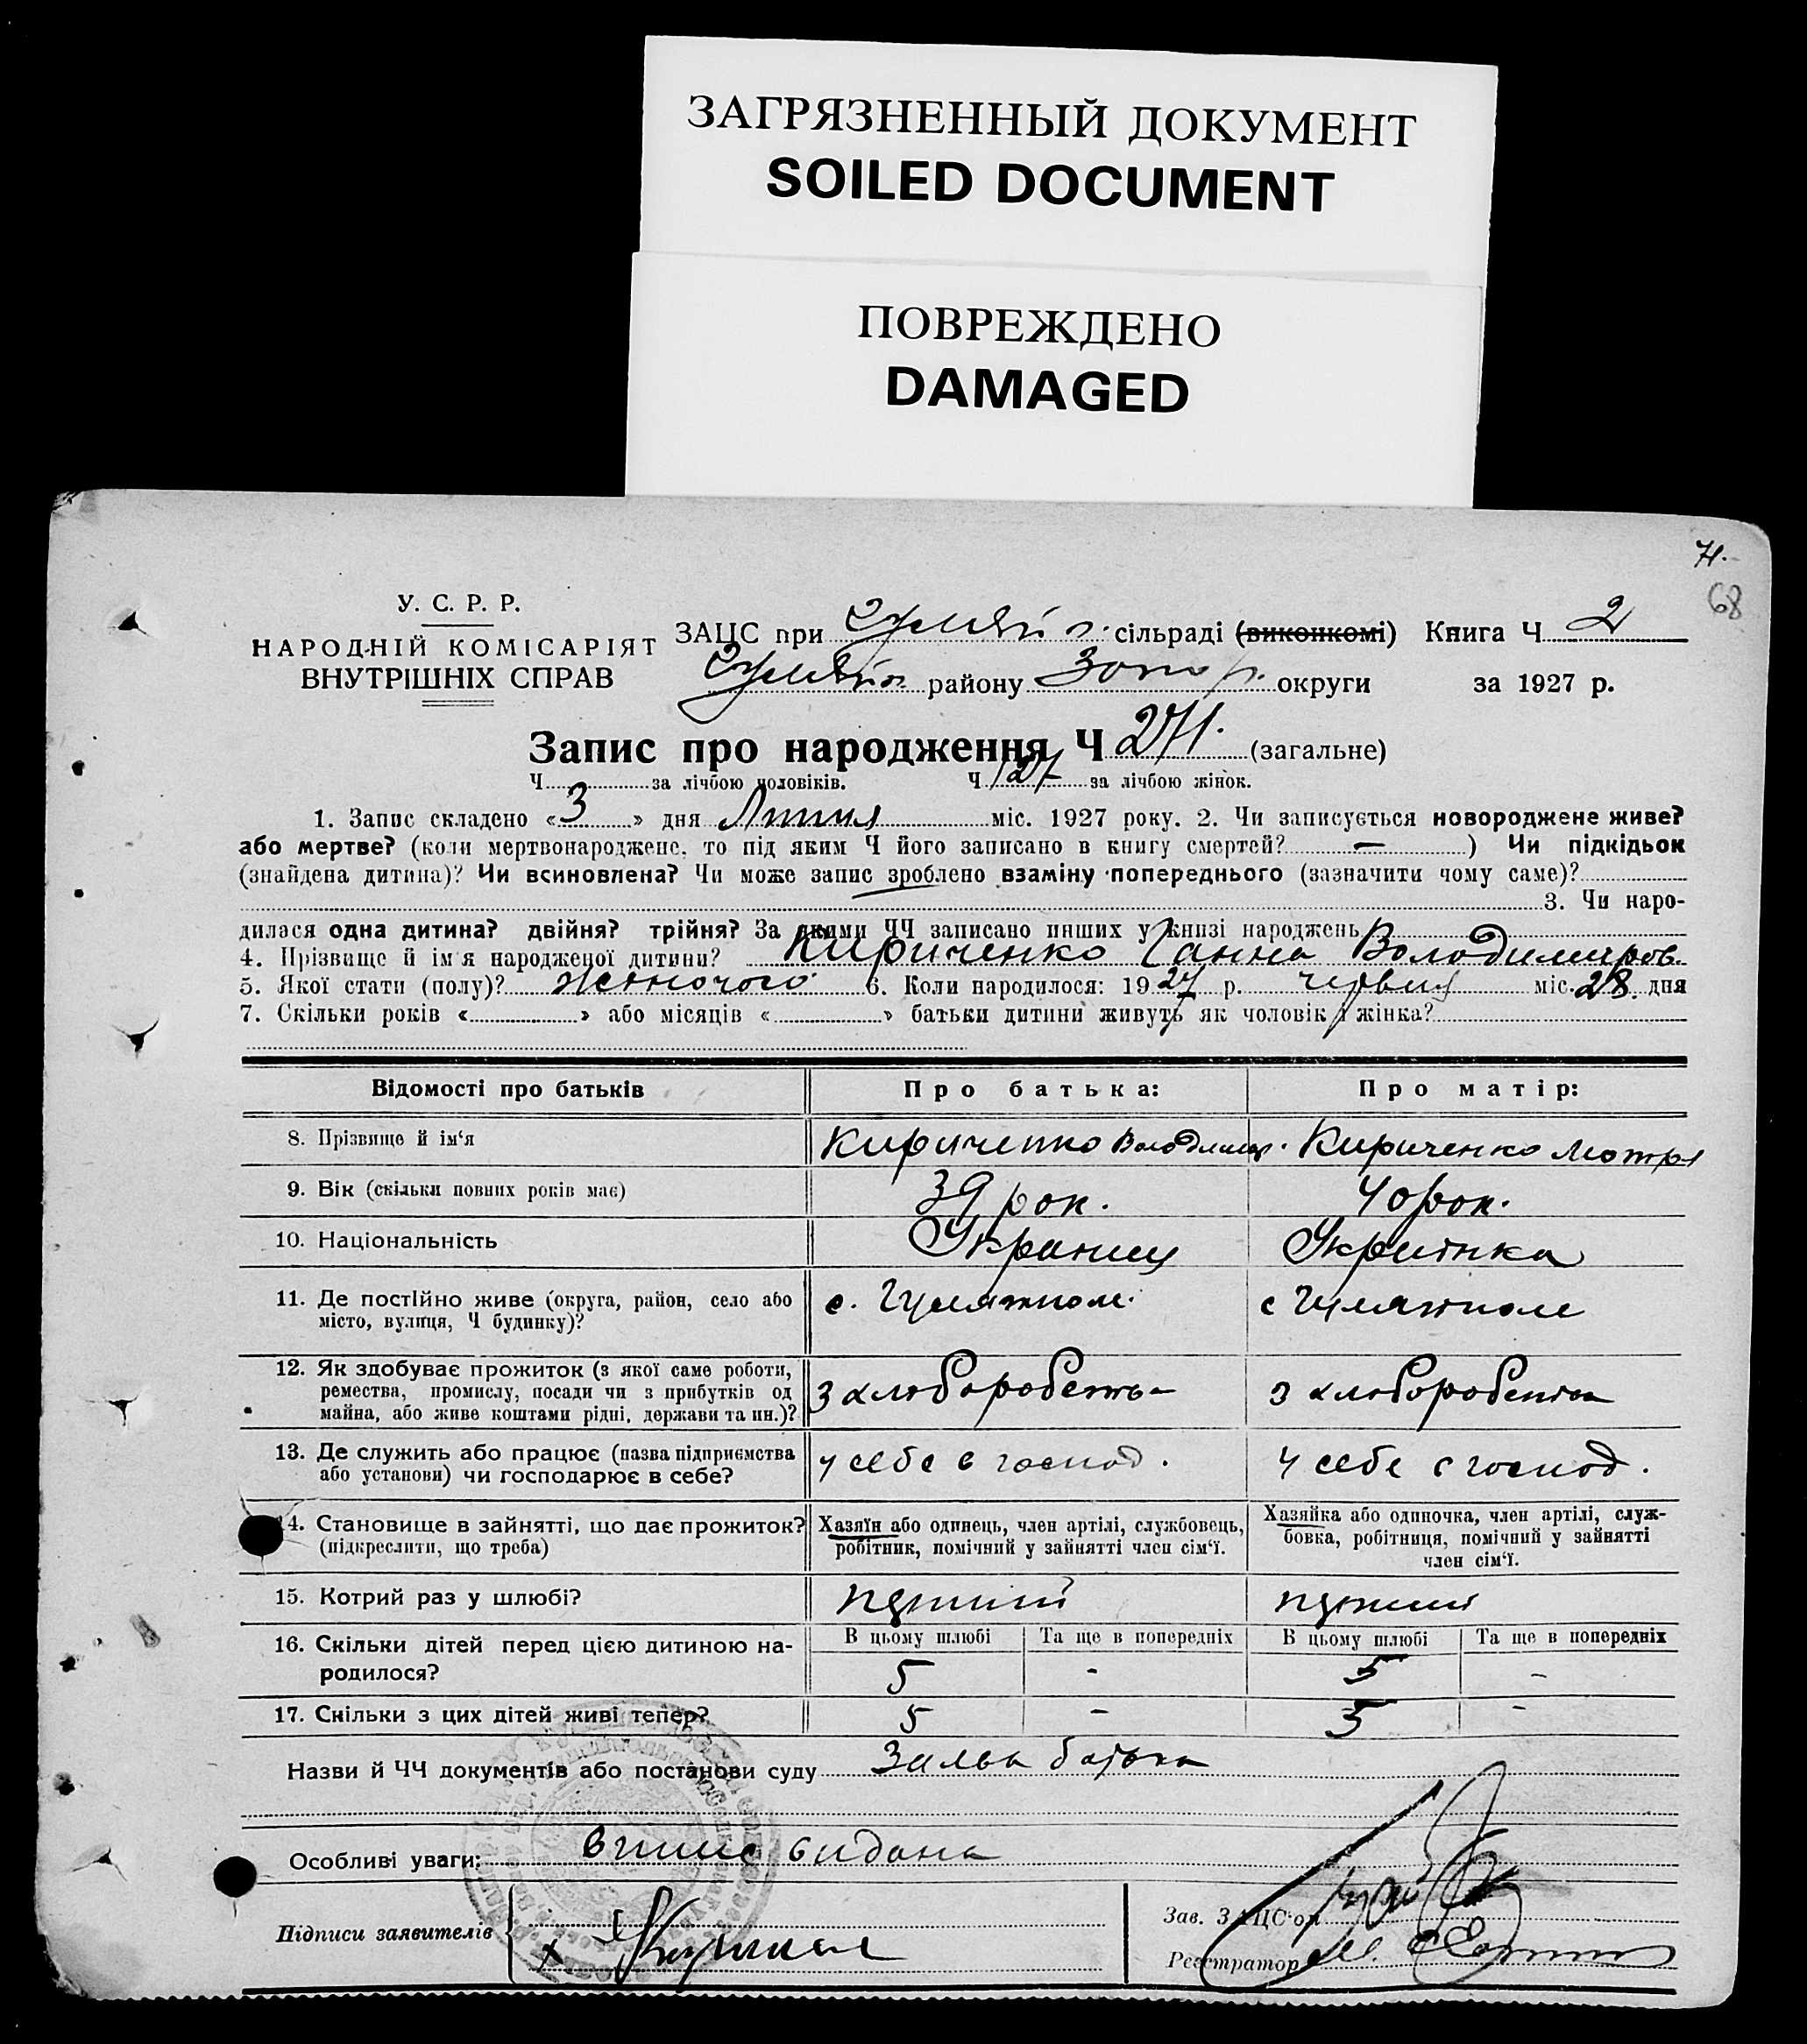 ЗАГРЯЗНЕННЫЙ ДОКУМЕНТ
SOILED DOCUMENT
ПОВРЕЖДЕНО
DAMAGED
71.
68
У. С. Р. Р.
НАРОДНІЙ КОМІСАРІЯТ
ВНУТРІШНІХ СПРАВ
ЗАЦС при Гуляйп. сільраді (виконкомі) Книга Ч 2
Гуляйп. району Запор. округи за 1927 р.
Запис про народження Ч 271. (загальне)
Ч за лічбою чоловіків. Ч 127 за лічбою жінок.
1. Запис складено «3» дня Липня міс. 1927 року. 2. Чи записується новороджене живе?
або мертве? (коли мертвонароджене, то під яким Ч його записано в книгу смертей? — ) Чи підкідьок
(знайдена дитина)? Чи всиновлена? Чи може запис зроблено взаміну попереднього (зазначити чому саме)?
3. Чи наро-
дилася одна дитина? двійня? трійня? За якими ЧЧ записано инших у книзі народжень
4. Прізвище й ім'я народженої дитини? Кириченко Ганна Володимиров.
5. Якої стати (полу)? жіночого 6. Коли народилося: 1927 р. червня міс. 28. дня
7. Скільки років « » або місяців « » батьки дитини живуть як чоловік і жінка?
Відомості про батьків Про батька: Про матір:
8. Прізвище й ім'я Кириченко Володимир. Кириченко Мотря
9. Вік (скільки повних років має) 39 рок. 40 рок.
10. Національність Украинец Украінка
11. Де постійно живе (округа, район, село або с. Гуляйполе. с Гуляйполе
місто, вулиця, Ч будинку)?
12. Як здобуває прожиток (з якої саме роботи,
ремества, промислу, посади чи з прибутків од з хліборобства з хліборобства
майна, або живе коштами рідні, держави та ин.)?
13. Де служить або працює (назва підприємства у себе в господ. у себе в господ.
або установи) чи господарює в себе?
14. Становище в зайнятті, що дає прожиток? Хазяїн або одинець, член артілі, службовець, Хазяйка або одиночка, член артілі, служ-
(підкреслити, що треба) робітник, помічний у зайнятті член сім'ї. бовка, робітниця, помічний у зайнятті
член сім'ї.
15. Котрий раз у шлюбі?
16. Скільки дітей перед цією дитиною на- В цьому шлюбі Та ще в попередніх В цьому шлюбі Та ще в попередніх
родилося? 5 - 5 -
17. Скільки з цих дітей живі тепер? 5 - 5 -
Назви й ЧЧ документів або постанови суду Заява батька
Особливі уваги: видана
Підписи заявителів
Зав. ЗАЦС'ом
Реєстратор